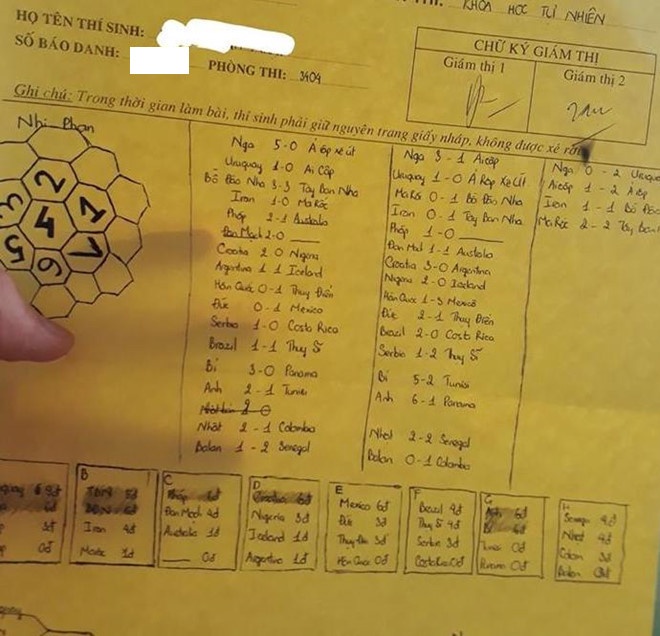 THI: KHOA HỌC TỰ NHIÊN
HỌ TÊN THÍ SINH:
SỐ BÁO DANH:
PHÒNG THI: 3404
CHỮ KÝ GIÁM THỊ
Giám thị 1
Giám thị 2
Ghi chú: Trong thời gian làm bài, thí sinh phải giữ nguyên trang giấy nháp, không được xé rời
Nhị Phan
2
3
1
4
5
1
6
Nga 5-0 Ả Rập xê út
Uruguay 1-0 Ai Cập
Bồ Đào Nha 3-3 Tây Ban Nha
Iran 1-0 Ma Rốc
Pháp 2-1 Australia
Đan Mạch 2-0
Croatia 2 0 Nigeria
Argentina 1 1 Iceland
Hàn Quốc 0-1 Thụy Điển
Đức 0-1 Mexico
Serbia 1-0 Costa Rica
Brazil 1-1 Thụy Sĩ
Bỉ 3-0 Panama
Anh 2-1 Tunisi
Nhật 2-1 Colombia
Balan 1-2 Senegal
Nga 3-1 Ai cập
Uruguay 1-0 Ả Rập Xê Út
Ma Rốc 0-1 Bồ Đào Nha
Iran 0-1 Tây Ban Nha
Pháp 1-0
Đan Mạch 1-1 Australia
Croatia 3-0 Argentina
Nigeria 2-0 Iceland
Hàn Quốc 1-3 Mexico
Đức 2-1 Thụy Điển
Brazil 2-0 Costa Rica
Serbia 1-2 Thụy Sĩ
Bỉ 5-2 Tunisi
Anh 6-1 Panama
Nhật 2-2 Senegal
Balan 0-1 Colombia
Nga 0-2
Ai cập 1-2 Ả
Iran 1-1 Bồ Đào
Ma Rốc 2-2 Tây Ban
6đ
6đ
3đ
0đ
B
TBN
BĐN
Iran 4đ
Maroc 1đ
C
Pháp 6đ
Đan Mạch 4đ
Australia 1đ
0đ
D
Croatia 6đ
Nigeria 3đ
Iceland 1đ
Argentina 1đ
E
Mexico 6đ
Đức 3đ
Thụy Điển 3đ
Hàn Quốc 0đ
F
Brazil 4đ
Thụy Sĩ 4đ
Serbia 3đ
Costa Rica 0đ
G
Anh 6đ
Bỉ 6đ
Tunisi 0đ
Panama 0đ
H
Senegal 4đ
Nhật 4đ
Colom 3đ
Balan 0đ